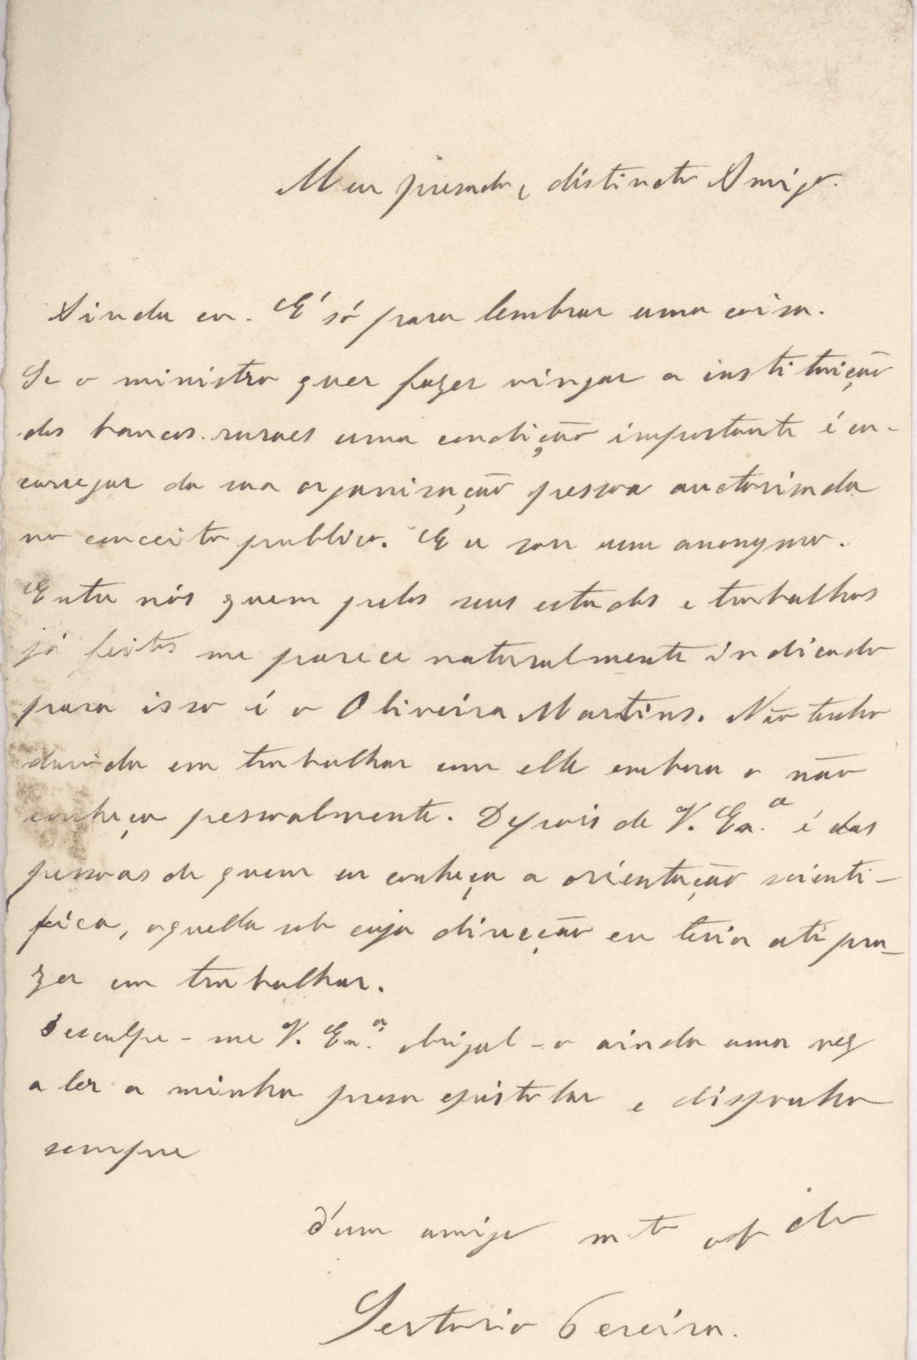 Meu presado e distincto Amigo.
Ainda eu. É só para lembrar uma coisa.
Se o ministro quer fazer vingar a instituição
dos bancos ruraes uma condição importante é en-
carregar da sua organisação pessoa auctorisada
no conceito publico. Eu sou um anonymo.
Entre nós quem pelos seus estudos e trabalhos
já feitos me parece naturalmente indicado
para isso é o Oliveira Martins. Não tenho
duvida em trabalhar com elle embora o não
conheça pessoalmente. Depois de V. Ex.ª é das
pessoas de quem eu conheço a orientação scienti-
fica, aquella sob cuja direcção eu teria até pra-
zer em trabalhar.
Desculpe-me V. Ex.ª obrigal-o ainda uma vez
a ler a minha prosa epistolar e disponha
sempre
d'um amigo mto
Sertorio Pereira.